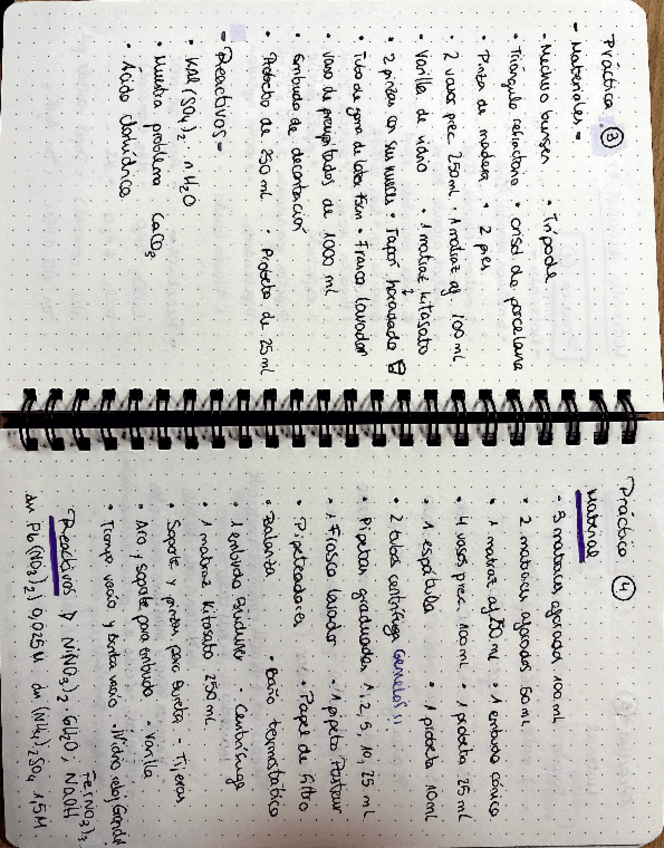 Práctica 3
- Materiales -
- Mechero bunsen • Trípode
• Triángulo refractario • crisol de porcelana
• Pinza de madera • 2 pies
• 2 vasos prec 250 mL • 1 matraz af. 100 mL
• Varilla de vidrio • 1 matraz kitasato
• 2 pinzas con sus nueces • Tapón horadado
• Tubo de goma de latex • Frasco lavador
• vaso de precipitados de 1000 mL
• Embudo de decantación
• Probeta de 250 mL • Probeta de 25 mL
- Reactivos -
• KAl(SO4)2 nH2O
• Muestra problema CaCO3
• Ácido clorhídrico
Práctica 4
Material
- 3 matraces aforados 100 mL
• 2 matraces aforados 50 mL
• 1 matraz af. 250 mL • 1 embudo cónico
• 4 vasos prec. 100 mL • 1 probeta 25 mL
• 1 espátula • 1 probeta 10 mL
• 2 tubos centrífuga Gemelos!!
• Pipetas graduadas 1, 2, 5, 10, 25 mL
• 1 Frasco lavador • 1 pipeta Pasteur
• Pipeteadores • Papel de filtro
• Balanza • Baño termostático
• 1 embudo Buchner • Centrífuga
• 1 matraz kitasato 250 mL
• Soporte y pinzas para bureta - Tijeras
• Aro y soporte para embudo - Varilla
• Trompa vacío y bomba vacío • Vidrio reloj Grande
Reactivos ▷ Ni(NO3)2 · 6H2O; NaOH Fe(NO3)3
dn Pb(NO3)2) 0,025M dn (NH4)2SO4 1,5M